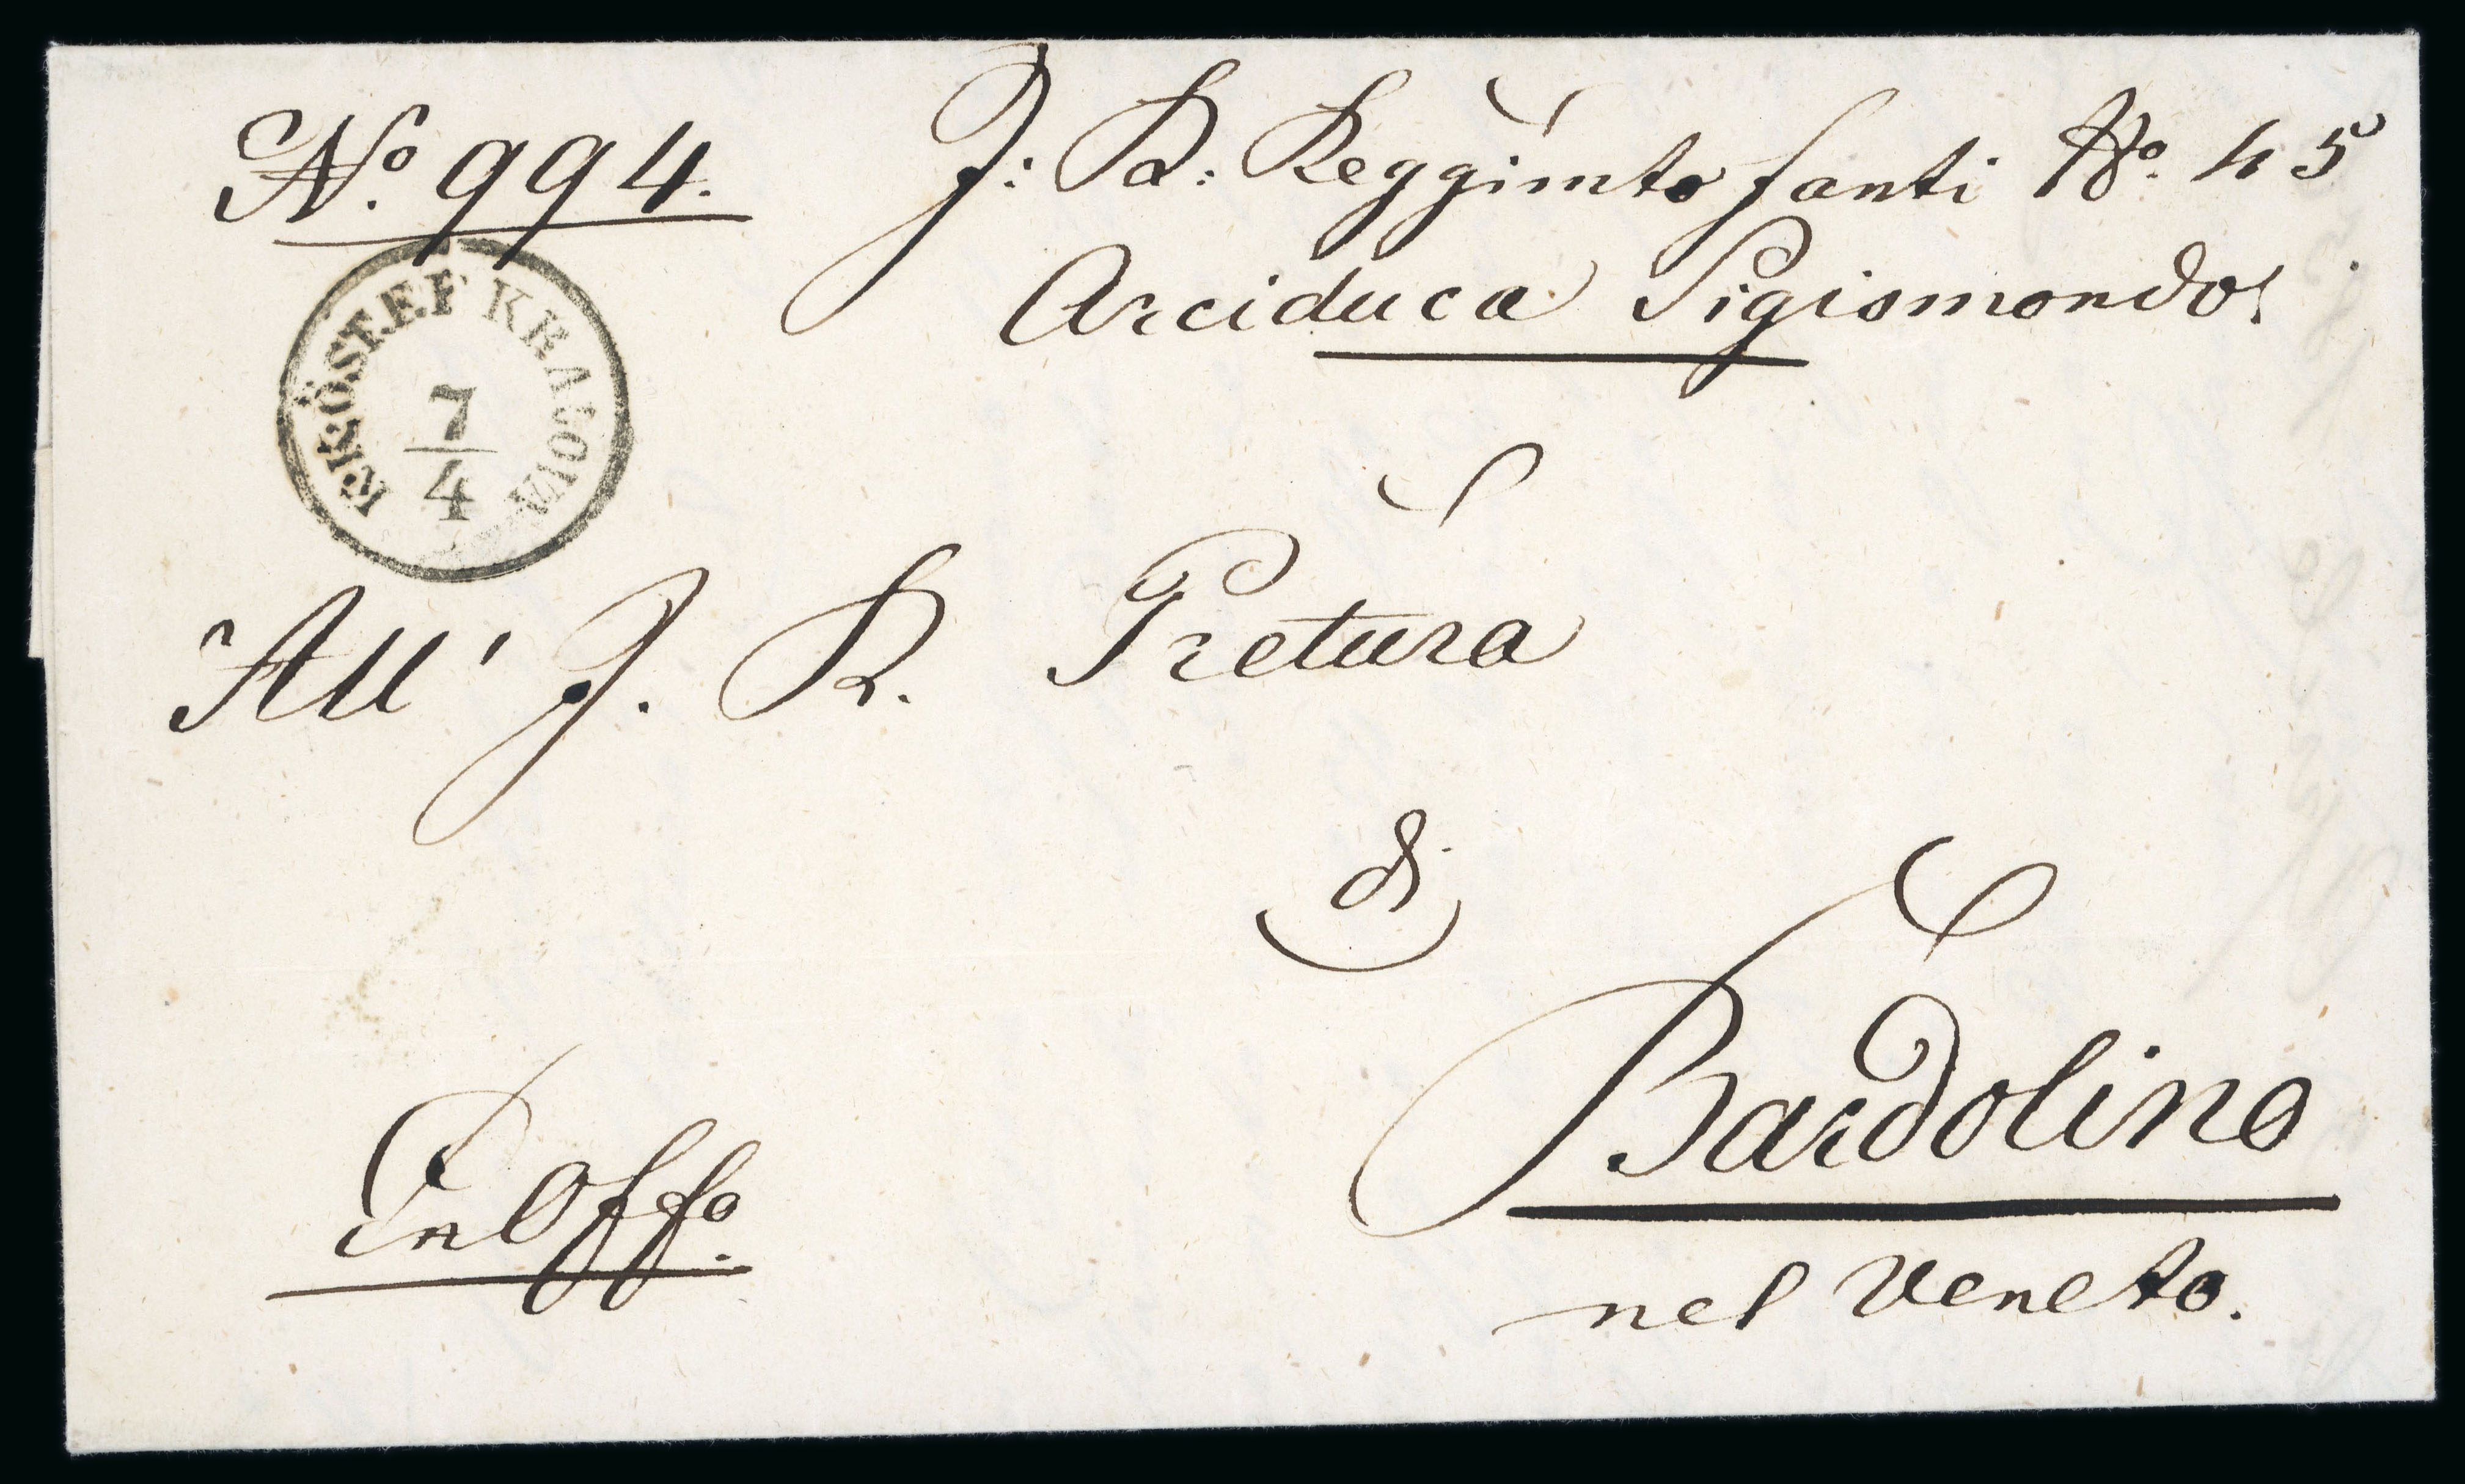 No. 994.
J: R: Reggimto fanti No. 45
Arciduca Sigismondo.
K:K:ÖST.F.P KRALOVA
7
4
All' J. R. Pretura
di
Bardolino
nel Veneto.
in Offo.